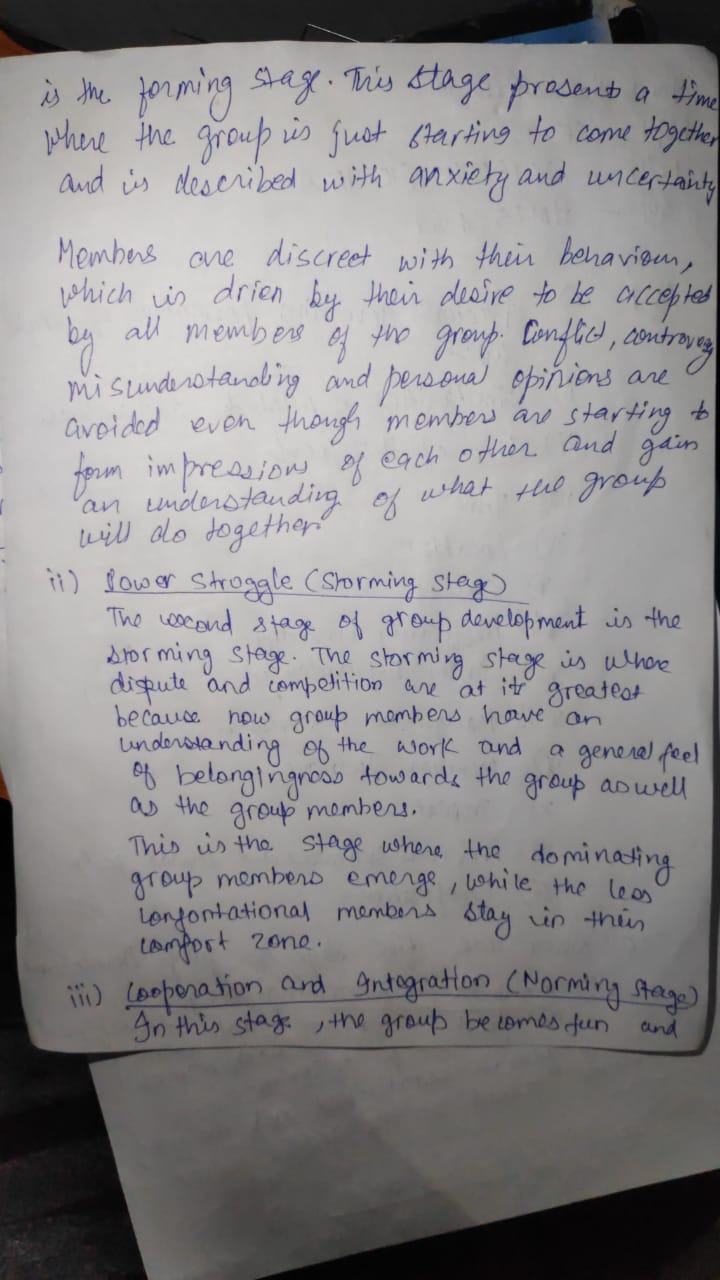 is the forming stage. This stage presents a time
where the group is just starting to come together
and is described with anxiety and uncertainty
Members are discreet with their behaviour,
which is drien by their desire to be accepted
by all members of the group. Conflict, controversy
misunderstanding and personal opinions are
avoided even though members are starting to
form impressions of each other and gain
an understanding of what the group
will do together
ii) Power Struggle (Storming Stage)
The second stage of group development is the
storming stage. The storming stage is where
dispute and competition are at its greatest
because now group members have an
understanding of the work and a general feel
of belongingness towards the group as well
as the group members.
This is the stage where the dominating
group members emerge, while the less
confontational members stay in their
comfort zone.
iii) Cooperation and Integration (Norming Stage)
In this stage, the group becomes fun and